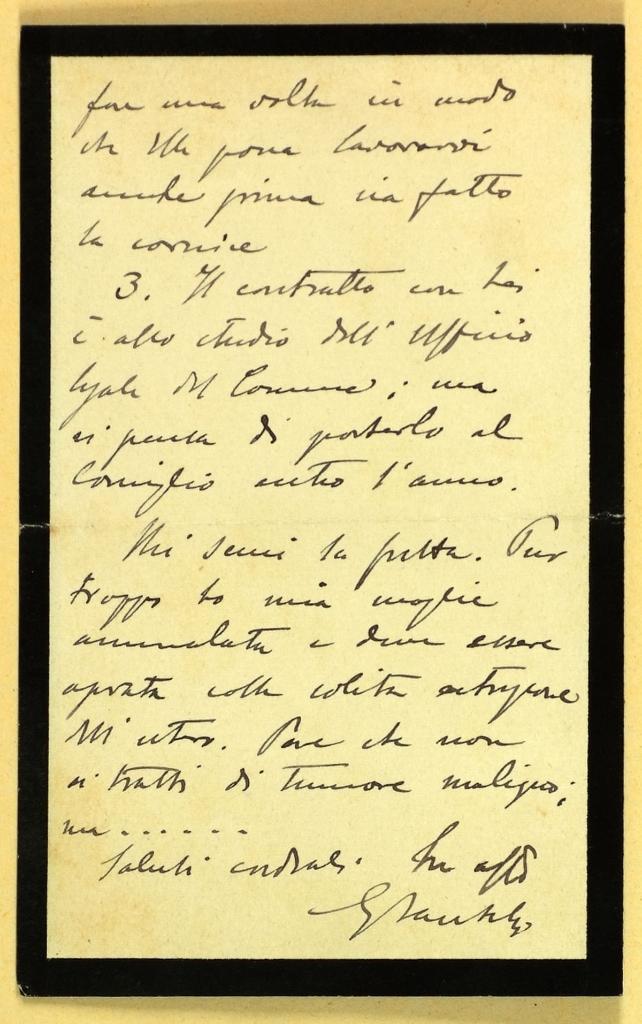 fare una volta in modo
che Ella possa lavorarvi
anche prima sia fatto
la cornice
3. Il contratto con Lei
è allo studio dell' Ufficio
legale del Comune; ma
si pensa di portarlo al
Consiglio entro l'anno.
Mi scusi la fretta. Pur
troppo ho mia moglie
ammalata e deve essere
operata colla solita estrazione
dell' utero. Pare che non
si tratti di tumore maligno;
ma . . . . . .
Saluti cordiali. Suo affo